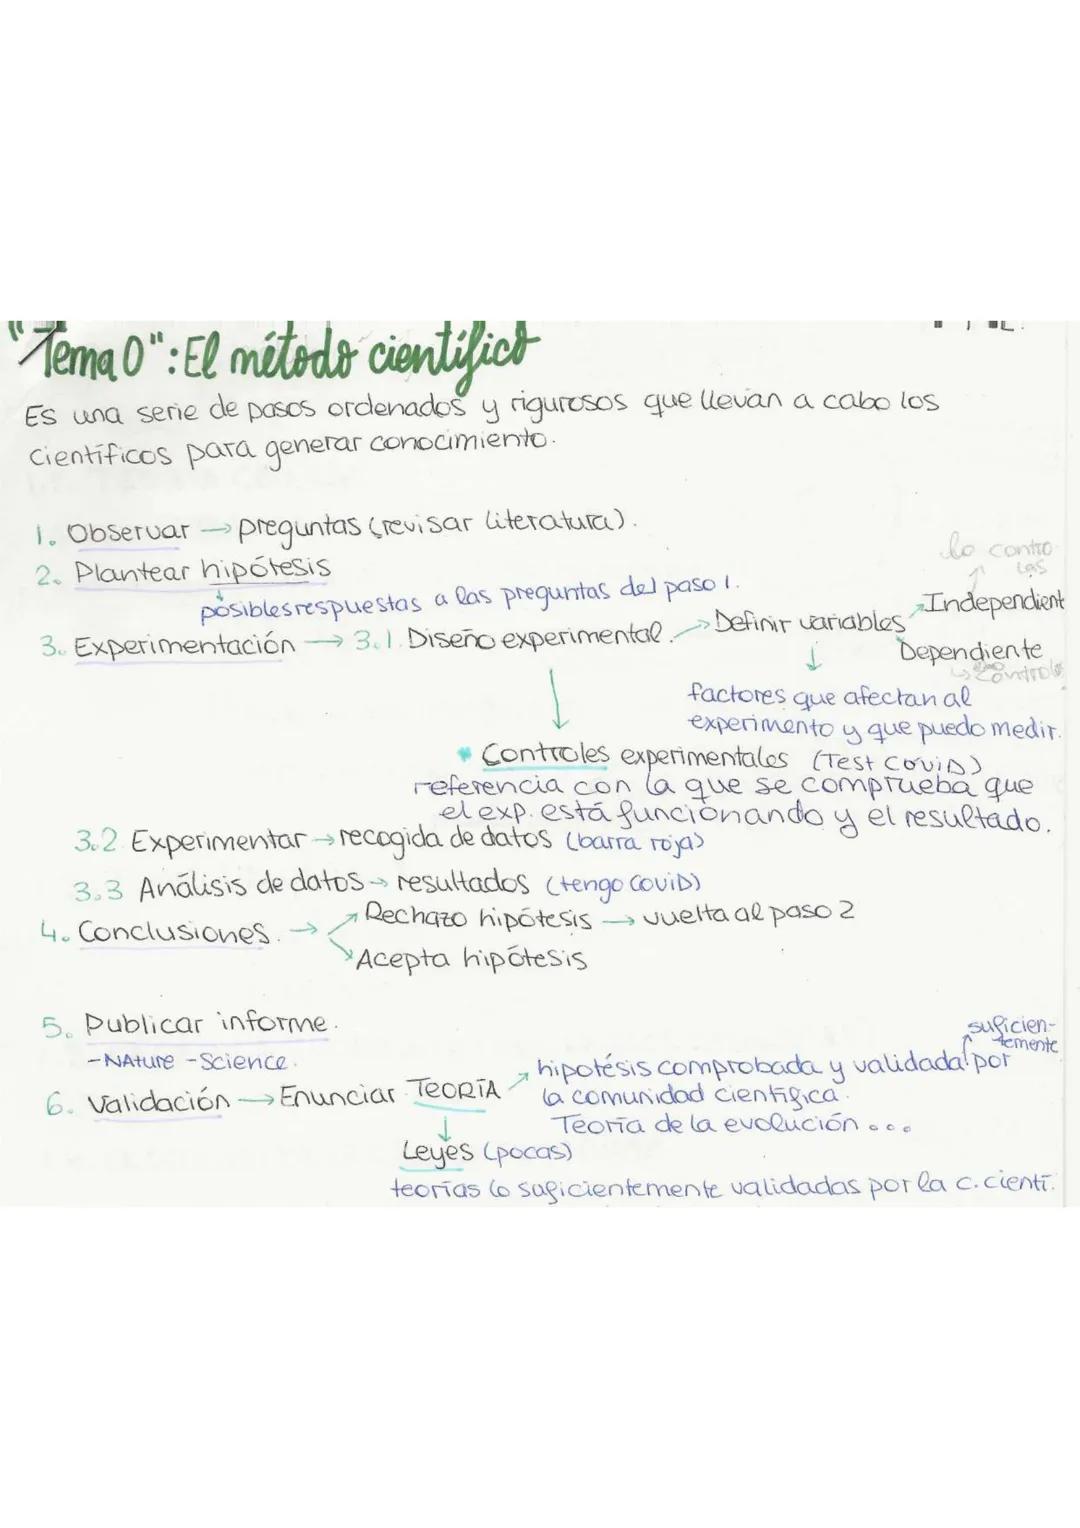 "Tema 0": El método científico
Es una serie de pasos ordenados y rigurosos que llevan a cabo los
científicos para generar conocimiento.
1. Observar → preguntas (revisar literatura).
2. Plantear hipótesis
posibles respuestas a las preguntas del paso 1.
lo contro-
las
3. Experimentación → 3.1. Diseño experimental. → Definir variables
Independient
Dependiente
factores que afectan al
experimento y que puedo medir.
* Controles experimentales (Test coviD)
referencia con la que se comprueba que
el exp. está funcionando y el resultado.
3.2 Experimentar → recogida de datos (barra roja)
3.3 Análisis de datos → resultados (tengo coviD)
4. Conclusiones. → Rechazo hipótesis → vuelta al paso 2
Acepta hipótesis
5. Publicar informe.
- NAture - Science.
suficien-
temente
6. Validación → Enunciar TEORÍA → hipotésis comprobada y validada por
la comunidad científica.
Teoría de la evolución ...
Leyes (pocas)
teorías lo suficientemente validadas por la c. cientí.